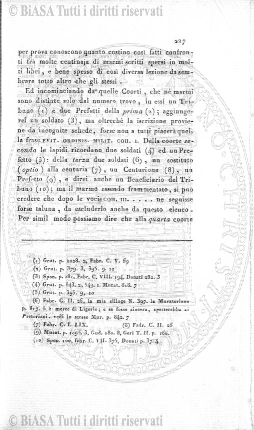 © BiASA Tutti i diritti riservati
227
per prova conoscono quanto costino così fatti confron-
ti fra molte centinaja di marmi scritti spersi in mol-
ti libri, e bene spesso di così diversa lezione da sem-
brare tutto altro che gli stessi.
Ed incominciando da quelle Coorti, che ne' marmi
sono distinte solo dal numero trovo, in essi un Tri-
buno (1) e due Prefetti della prima (2); aggiunge-
rei un soldato (3), ma oltrechè la iscrizione provie-
ne da incognite schede, forse non a tutti piacerà quel-
la PRAEFECT. ORDINIS. MILIT. COH. I. Della coorte se-
conda le lapidi ricordano due soldati (4) ed un Pre-
fetto (5): della terza due soldati (6), un sostituto
(optio) alla centuria (7), un Centurione (8), un
Prefetto (9), e direi anche un Beneficiario del Tri-
buno (10); ma il marmo essendo frammentato, si può
credere che dopo le voci COH. III. ne seguisse
forse taluna, da escluderlo anche da questo elenco.
Per simil modo possiamo dire che alla quarta coorte
(1) Grut. p. 1028. 2, Fabr. C. V. 69
(2) Grut. p. 399. 3, 396. 9, 10
(3) Spon. p. 261, Fabr. C. VIII. 194, Donati 281. 3
(4) Grut. p. 841. 2, 843. 1. Murat. 818. 7
(5) Grut. p. 396. 9, 10
(6) Fabr. C. II. 26, la mia silloge N. 397. la Muratoriana
p. 815. 6. è marmo di Ligorio; e se fosse sincera, spetterebbe a'
Pretoriani, come la strana Mur. p. 842. 7
(7) Fabr. C. I. LIX. (8) Fabr. C. II. 26
(9) Murat. p. 1096. 3, Gud. 180. 8, Gori T. II. p. 160.
(10) Spon. 200, Fabr. C. VII 376, Donati p. 175. 4
© BiASA Tutti i diritti riservati